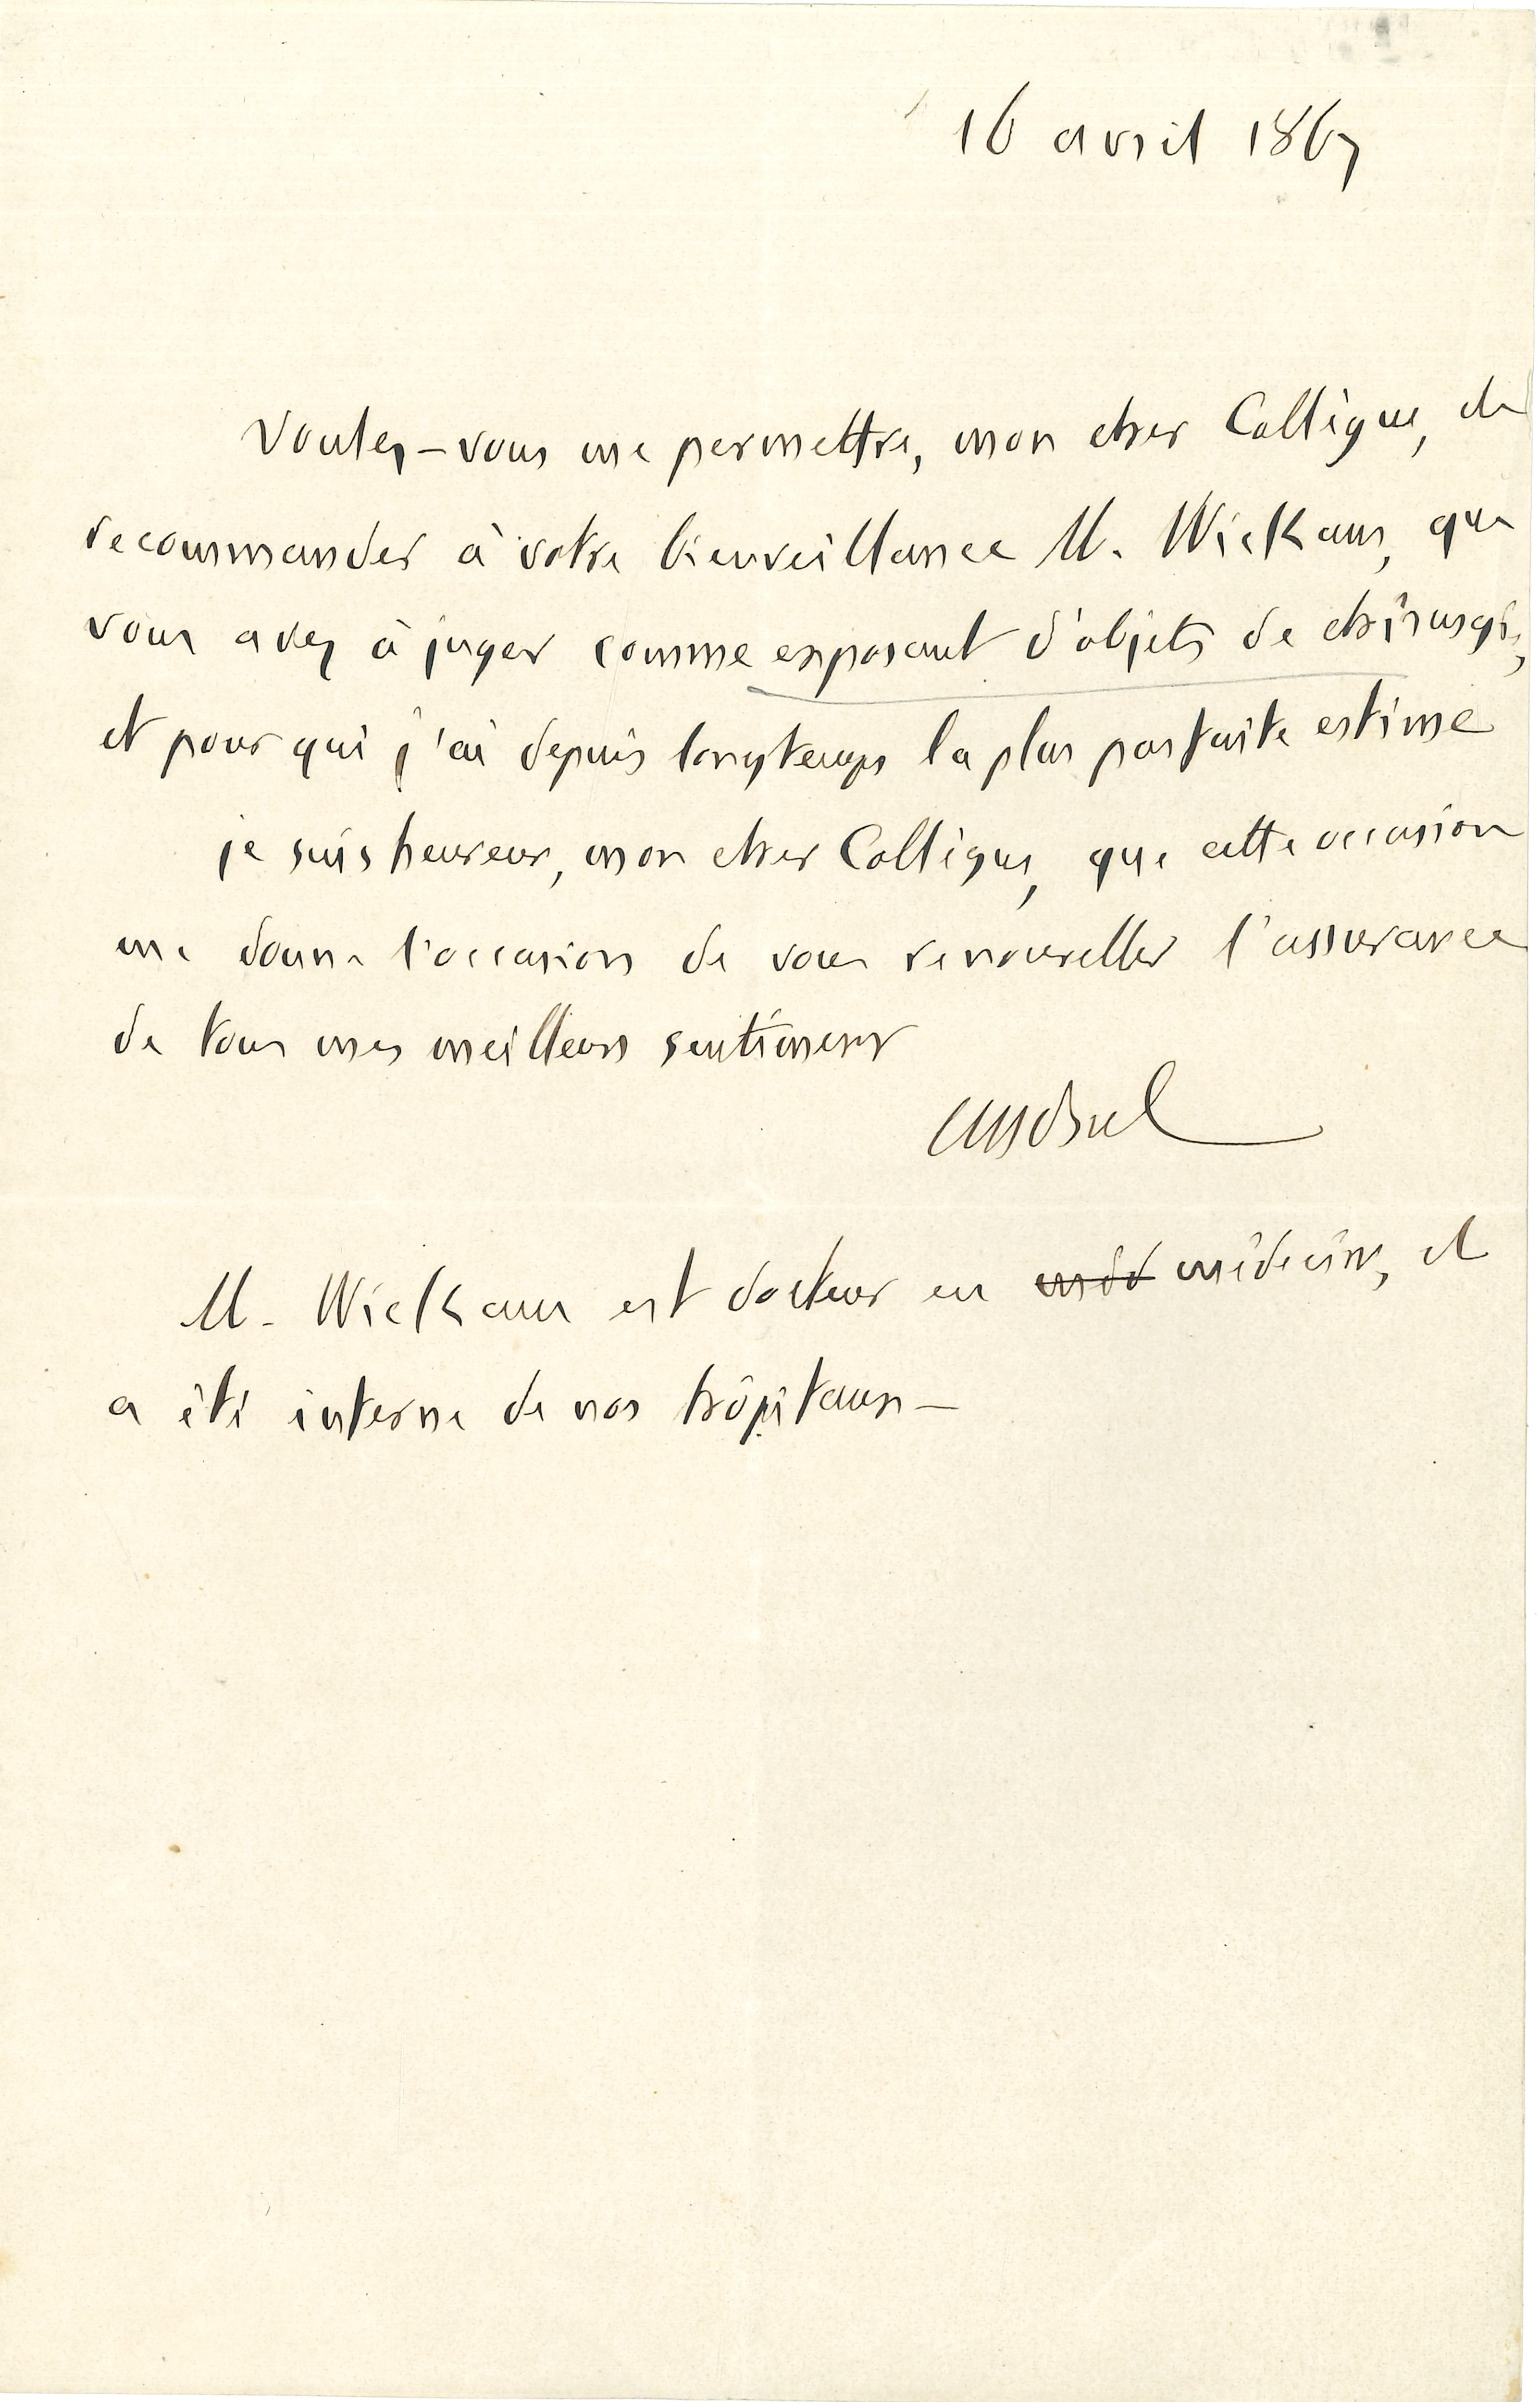 16 avril 1867
Voulez-vous me permettre, mon cher Collègue, de
recommander à votre bienveillance M. Wickam, que
vous avez à juger comme exposant d'objets de chirurgie,
et pour qui j'ai depuis longtemps la plus parfaite estime
je suis heureux, mon cher Collègue, que cette occasion
me donne l'occasion de vous renouveller l'assurance
de tous mes meilleurs sentimens
Andral
M. Wickam est docteur en méd médecine, et
a été interne de nos hôpitaux —